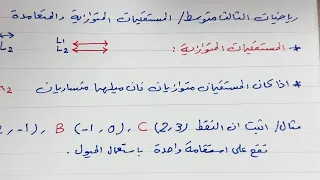 رياضيات الثالث متوسط / المستقيمات المتوازية والمتعامدة
* المستقيمات المتوازية :
L1
L2
L2
* اذا كان المستقيمان متوازيان فان ميلهما متساويان
مثال / اثبت ان النقط C (2,3) , B (-1,0) , , -1)
تقع على استقامة واحدة باستعمال الميول .